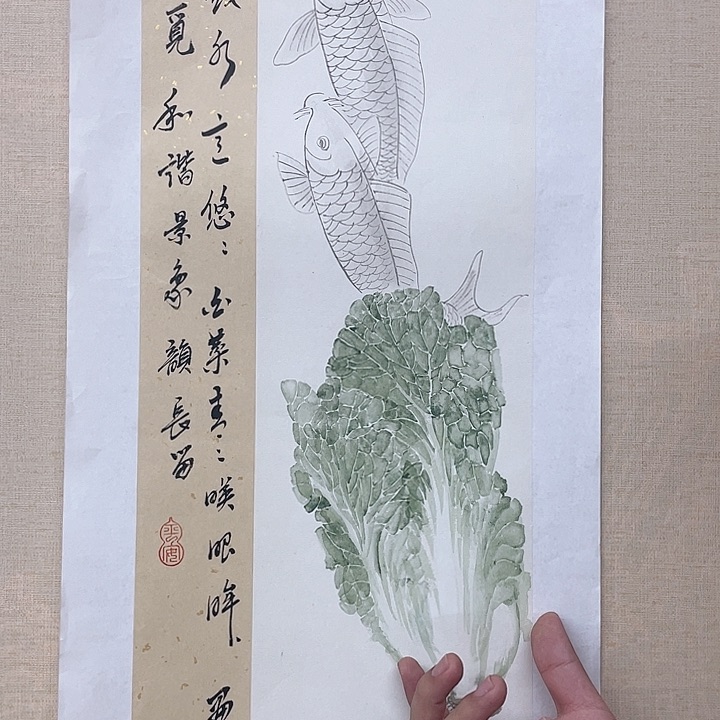 水意悠悠白菜青青映眼眸
覓和諧景象韻長留
平安